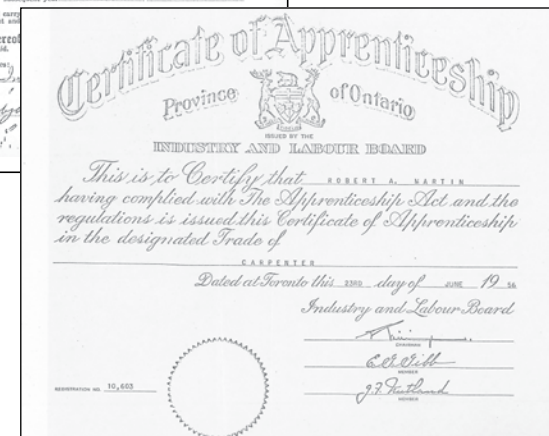 carry
ereof
Certificate of Apprenticeship
Province of Ontario
ISSUED BY THE
INDUSTRY AND LABOUR BOARD
This is to Certify that ROBERT A. MARTIN
having complied with The Apprenticeship Act and the
regulations is issued this Certificate of Apprenticeship
in the designated Trade of
CARPENTER
Dated at Toronto this 23RD day of JUNE 19 56
Industry and Labour Board
CHAIRMAN
MEMBER
MEMBER
REGISTRATION NO. 10,603